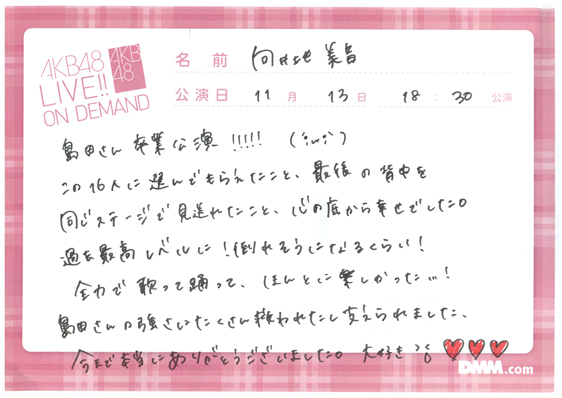 AKB48
LIVE!!
ON DEMAND
AKB
48
名前 向井地 美音
公演日 11月 13日 18:30 公演
島田さん 卒業公演 !!!!! (;ω;)
この16人に選んでもらえたこと、最後の背中を
同じステージで見送れたこと、心の底から幸せでした。
過去最高レベルに!倒れそうになるくらい!
全力で歌って踊って、ほんとに楽しかった…!
島田さんの強さにたくさん救われたし支えられました、
今まで本当にありがとうございました。大好き
DMM.com